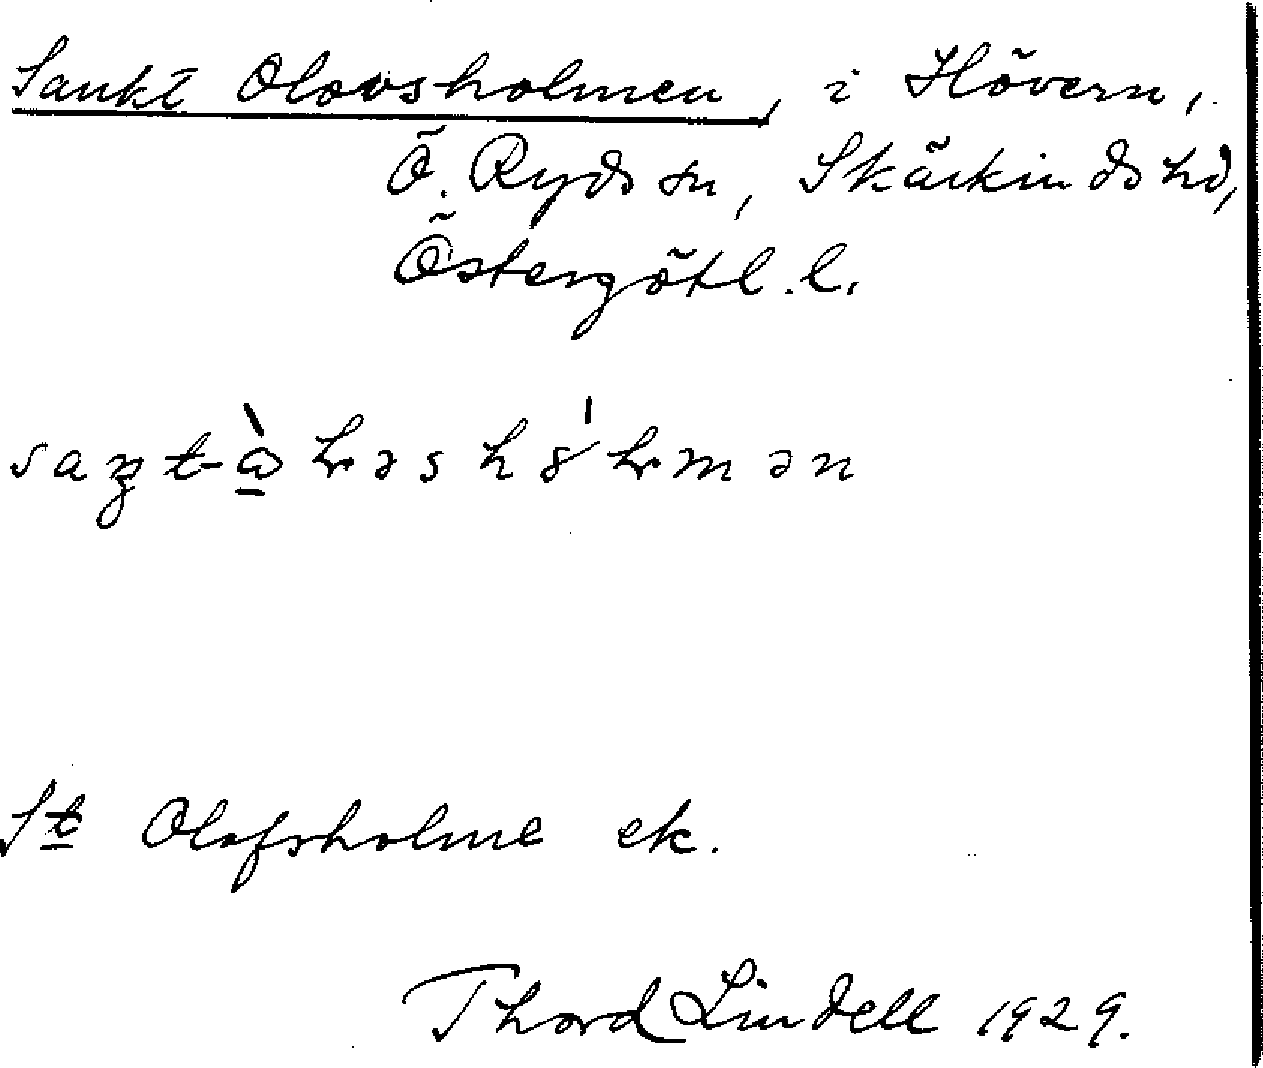 Sankt Olovsholmen, i Hövern,
Ö. Ryds sn, Skärkinds hd,
Östergötl. l.
St Olofsholme ek.
Thord Lindell 1929.